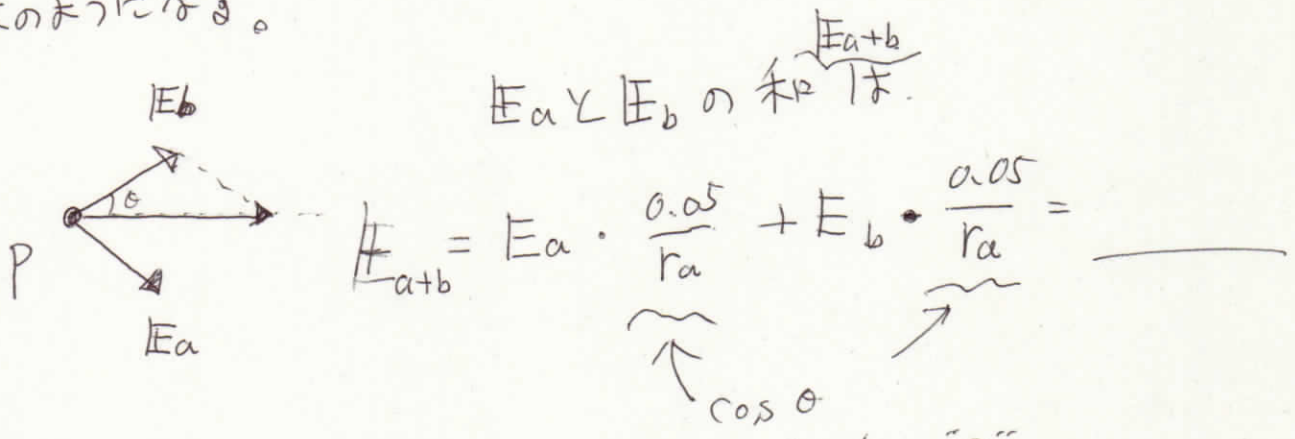 のようになる。
𝔼a+b
𝔼b
𝔼aと𝔼bの和は.
θ
P
𝔼a+b = Ea · 0.05/ra + Eb · 0.05/ra =
𝔼a
cos θ